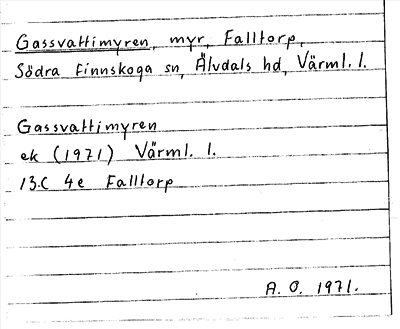 Gassvattimyren, myr, Falltorp,
Södra Finnskoga sn, Älvdals hd, Värml. l.
Gassvattimyren
ek (1971) Värml. l.
13C 4e Falltorp
A. O. 1971.